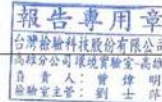 報告專用章
台灣檢驗科技股份有限公司
高雄分公司環境實驗室-高雄
負責人：曾煒明
檢驗室主管：劉士萍